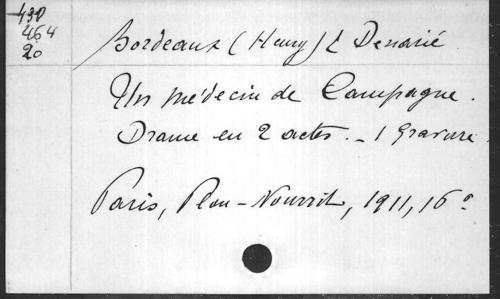 430
464
20
Bordeaux (Henry) & Denarié
Un médecin de Campagne.
Drame en 2 actes. - 1 gravure.
Paris, Plon-Nourrit, 1911, 16°